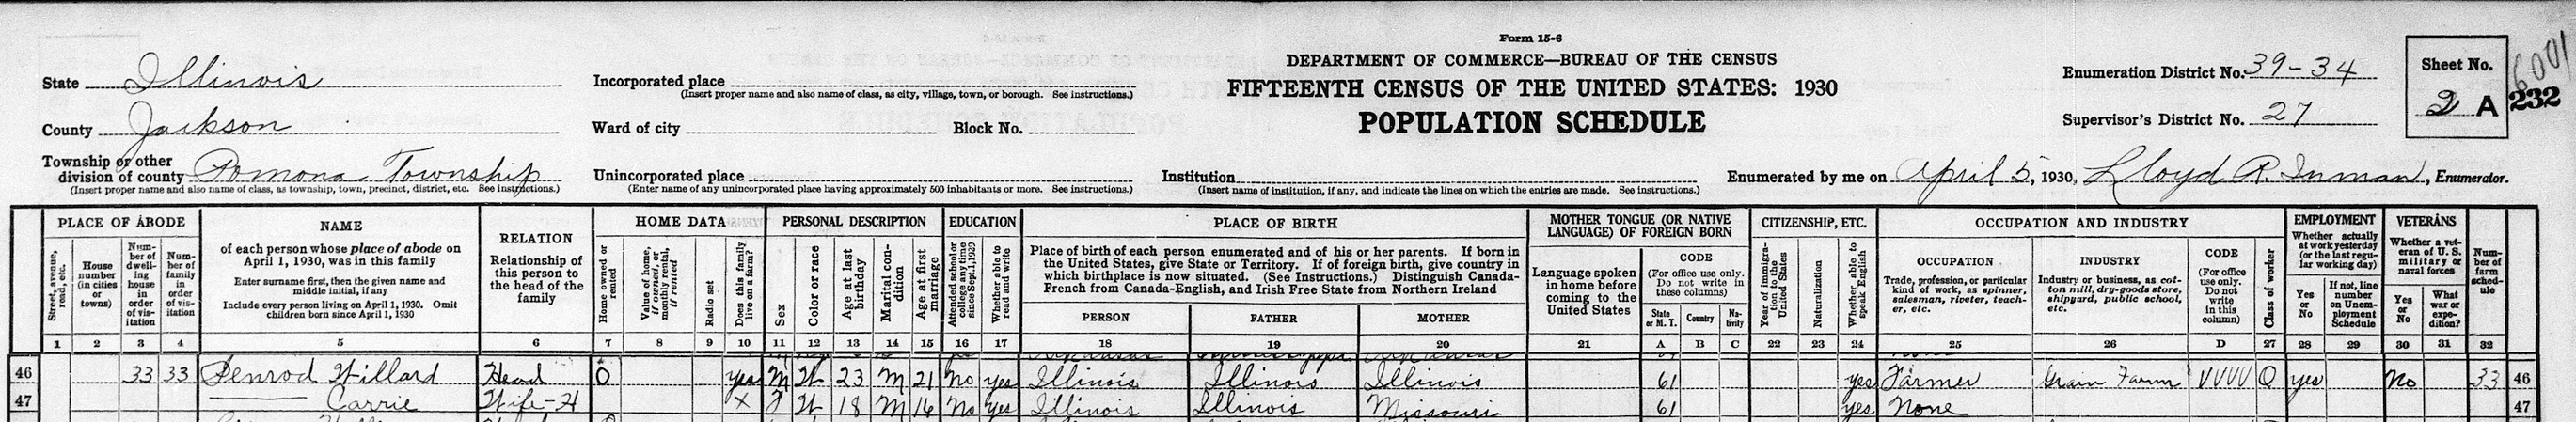 Form 15-6
DEPARTMENT OF COMMERCE—BUREAU OF THE CENSUS
FIFTEENTH CENSUS OF THE UNITED STATES: 1930
POPULATION SCHEDULE
State Illinois
County Jackson
Township or other division of county Pomona Township
(Insert proper name and also name of class, as township, town, precinct, district, etc. See instructions.)
Incorporated place
(Insert proper name and also name of class, as city, village, town, or borough. See instructions.)
Ward of city Block No.
Unincorporated place
(Enter name of any unincorporated place having approximately 500 inhabitants or more. See instructions.)
Institution
(Insert name of institution, if any, and indicate the lines on which the entries are made. See instructions.)
Enumeration District No. 39-34
Supervisor's District No. 27
Sheet No.
2 A
232
6001
Enumerated by me on April 5, 1930, Lloyd R. Inman, Enumerator.
PLACE OF ABODE
Street, avenue, road, etc.
House number (in cities or towns)
Number of dwelling house in order of visitation
Number of family in order of visitation
NAME
of each person whose place of abode on April 1, 1930, was in this family
Enter surname first, then the given name and middle initial, if any
Include every person living on April 1, 1930. Omit children born since April 1, 1930
RELATION
Relationship of this person to the head of the family
HOME DATA
Home owned or rented
Value of home, if owned, or monthly rental, if rented
Radio set
Does this family live on a farm?
PERSONAL DESCRIPTION
Sex
Color or race
Age at last birthday
Marital condition
Age at first marriage
EDUCATION
Attended school or college any time since Sept. 1, 1929
Whether able to read and write
PLACE OF BIRTH
Place of birth of each person enumerated and of his or her parents. If born in the United States, give State or Territory. If of foreign birth, give country in which birthplace is now situated. (See Instructions.) Distinguish Canada-French from Canada-English, and Irish Free State from Northern Ireland
PERSON FATHER MOTHER
MOTHER TONGUE (OR NATIVE LANGUAGE) OF FOREIGN BORN
Language spoken in home before coming to the United States
CODE
(For office use only. Do not write in these columns)
State or M. T. Country Nativity
CITIZENSHIP, ETC.
Year of immigration to the United States
Naturalization
Whether able to speak English
OCCUPATION AND INDUSTRY
OCCUPATION
Trade, profession, or particular kind of work, as spinner, salesman, riveter, teacher, etc.
INDUSTRY
Industry or business, as cotton mill, dry-goods store, shipyard, public school, etc.
CODE
(For office use only. Do not write in this column)
Class of worker
EMPLOYMENT
Whether actually at work yesterday (or the last regular working day)
Yes or No
If not, line number on Unemployment Schedule
VETERANS
Whether a veteran of U. S. military or naval forces
Yes or No
What war or expedition?
Number of farm schedule
1 2 3 4 5 6 7 8 9 10 11 12 13 14 15 16 17 18 19 20 21 A B C 22 23 24 25 26 D 27 28 29 30 31 32
46 33 33 Penrod Willard Head O yes M W 23 M 21 No yes Illinois Illinois Illinois 61 yes Farmer Grain Farm VVVV O yes No 33 46
47 Carrie Wife-H X F W 18 M 16 No Yes Illinois Illinois Missouri 61 yes None 47